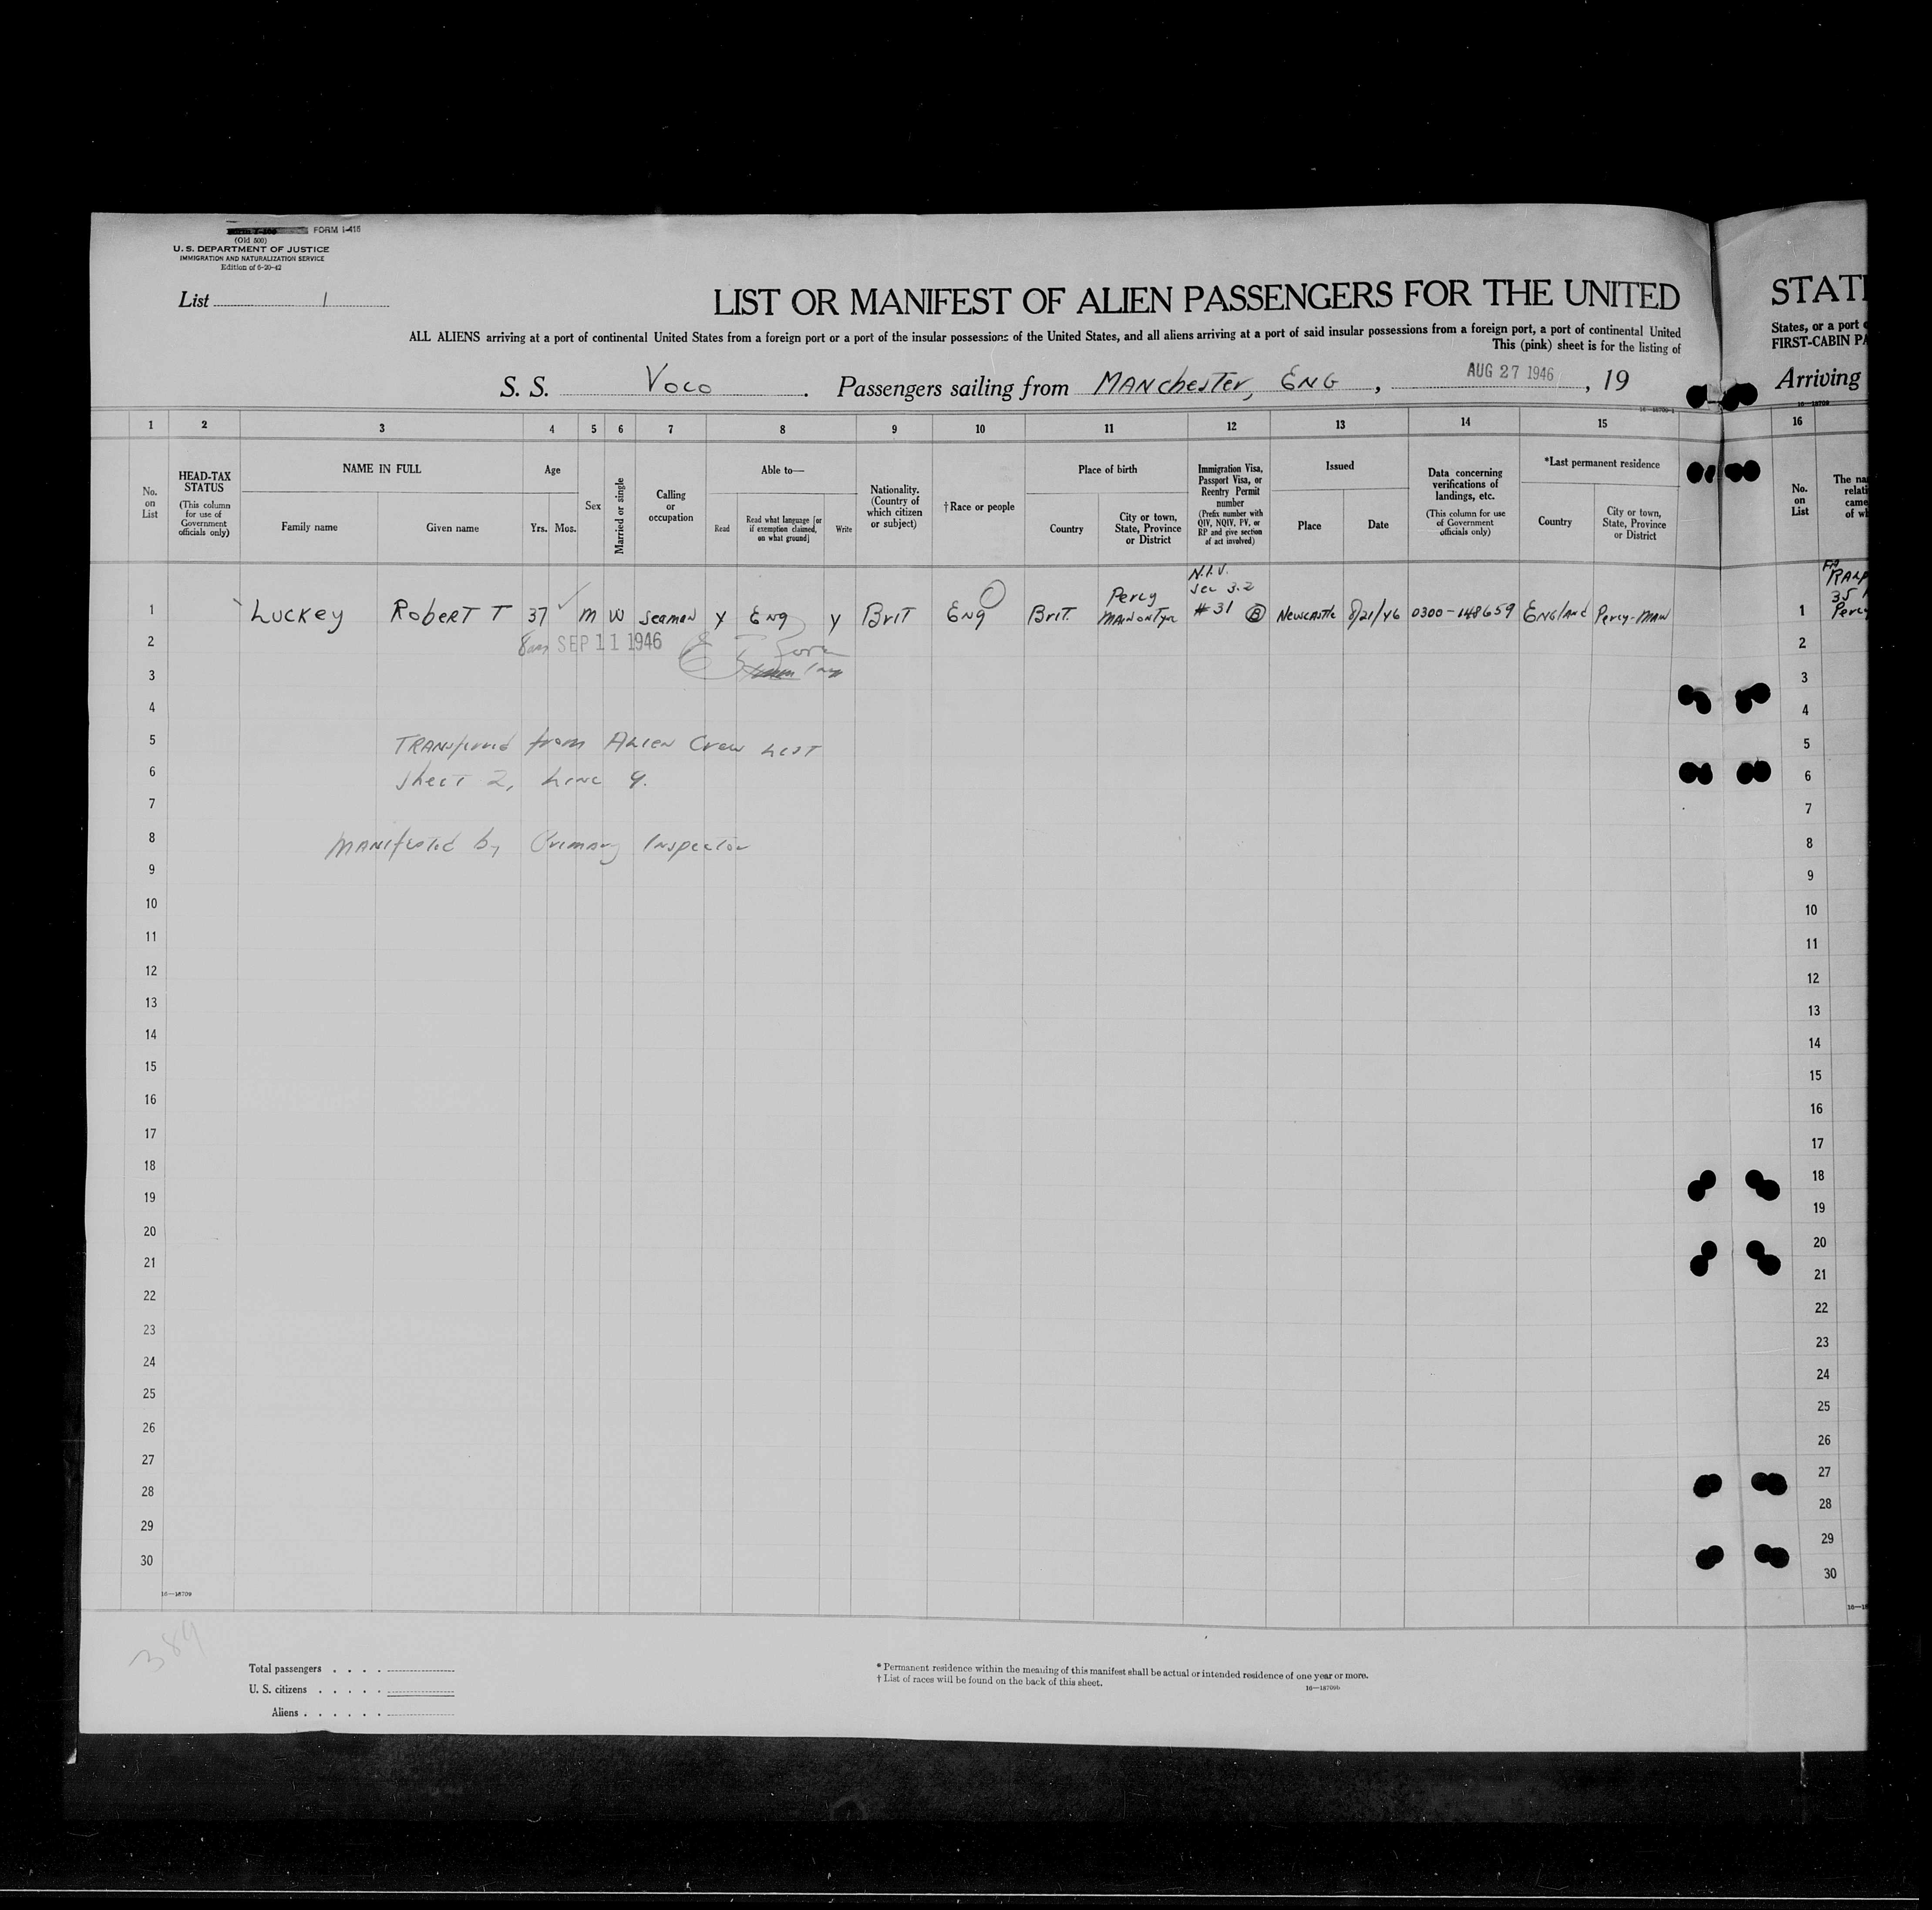 FORM I-415
(Old 500)
U. S. DEPARTMENT OF JUSTICE
IMMIGRATION AND NATURALIZATION SERVICE
Edition of 6-20-42
List 1
LIST OR MANIFEST OF ALIEN PASSENGERS FOR THE UNITED
STATE
ALL ALIENS arriving at a port of continental United States from a foreign port or a port of the insular possessions of the United States, and all aliens arriving at a port of said insular possessions from a foreign port, a port of continental United
States, or a port
This (pink) sheet is for the listing of
FIRST-CABIN PA
S. S. Voco . Passengers sailing from Manchester, Eng , AUG 27 1946 , 19
Arriving
16—18709-1
16—18709
1 2 3 4 5 6 7 8 9 10 11 12 13 14 15 16
No. on List
HEAD-TAX STATUS
(This column for use of Government officials only)
NAME IN FULL
Family name
Given name
Age
Yrs. Mos.
Sex
Married or single
Calling or occupation
Able to—
Read
Read what language [or if exemption claimed, on what ground]
Write
Nationality. (Country of which citizen or subject)
†Race or people
Place of birth
Country
City or town, State, Province or District
Immigration Visa, Passport Visa, or Reentry Permit number
(Prefix number with QIV, NQIV, PV, or RP and give section of act involved)
Issued
Place
Date
Data concerning verifications of landings, etc.
(This column for use of Government officials only)
*Last permanent residence
Country
City or town, State, Province or District
No. on List
The na
relati
came
of wh
N.I.V.
Sec 3.2
1 Luckey Robert T 37 M W Seaman Y Eng Y Brit Eng Brit. Percy Main on Tyne #31 Newcastle 8/21/46 0300-148659 England Percy-Main
1
35
Percy
2 8am SEP 11 1946 2
3 3
4 4
5 Transferred from Alien Crew List 5
6 Sheet 2, Line 9. 6
7 7
8 Manifested by Primary Inspector 8
9 9
10 10
11 11
12 12
13 13
14 14
15 15
16 16
17 17
18 18
19 19
20 20
21 21
22 22
23 23
24 24
25 25
26 26
27 27
28 28
29 29
30 30
16—18709
16—18
384
Total passengers . . . .
U. S. citizens . . . . .
Aliens . . . . . .
* Permanent residence within the meaning of this manifest shall be actual or intended residence of one year or more.
† List of races will be found on the back of this sheet.
16—18709b